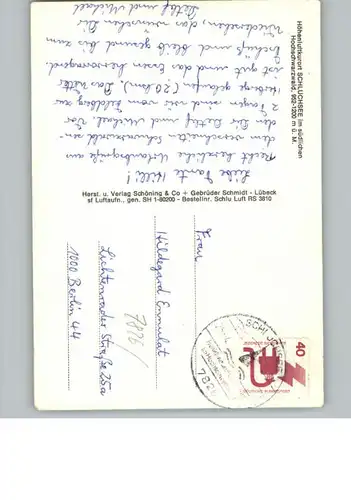 Höhenluftkurort SCHLUCHSEE im südlichen
Hochschwarzwald, 952-1200 m ü. M.
Liebe Tante Hilli!
Recht herzliche Urlaubsgrüße aus
dem verschneiten Schwarzwald sen-
den Dir Detlef und Michael. Vor
2 Tagen sind wir vom Feldberg zur
Herberge gelaufen (20 km). Das Wetter
ist gut und das Essen hervorragend.
Tschüß und bleib gesund bis zum
Wiedersehen, das wünschen Dir
Detlef und Michael
Herst. u. Verlag Schöning & Co + Gebrüder Schmidt - Lübeck
st Luftaufn., gen. SH 1-80200 - Bestellnr. Schlu Luft RS 3810
Frau
Hildegard Emmulat
7826/
Lichtenrader Straße 25a
1000 Berlin 44
SCHLUCHSEE
7826
40